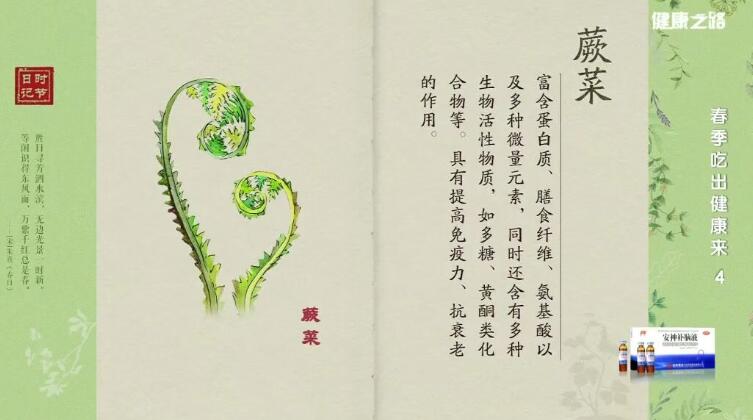 健康之路
蕨菜
富含蛋白质、膳食纤维、氨基酸以
及多种微量元素，同时还含有多种
生物活性物质，如多糖、黄酮类化
合物等。具有提高免疫力、抗衰老
的作用。
蕨菜
春季吃出健康来 4
安神补脑液
时节
日记
胜日寻芳泗水滨，无边光景一时新。
等闲识得东风面，万紫千红总是春。
——[宋]朱熹《春日》